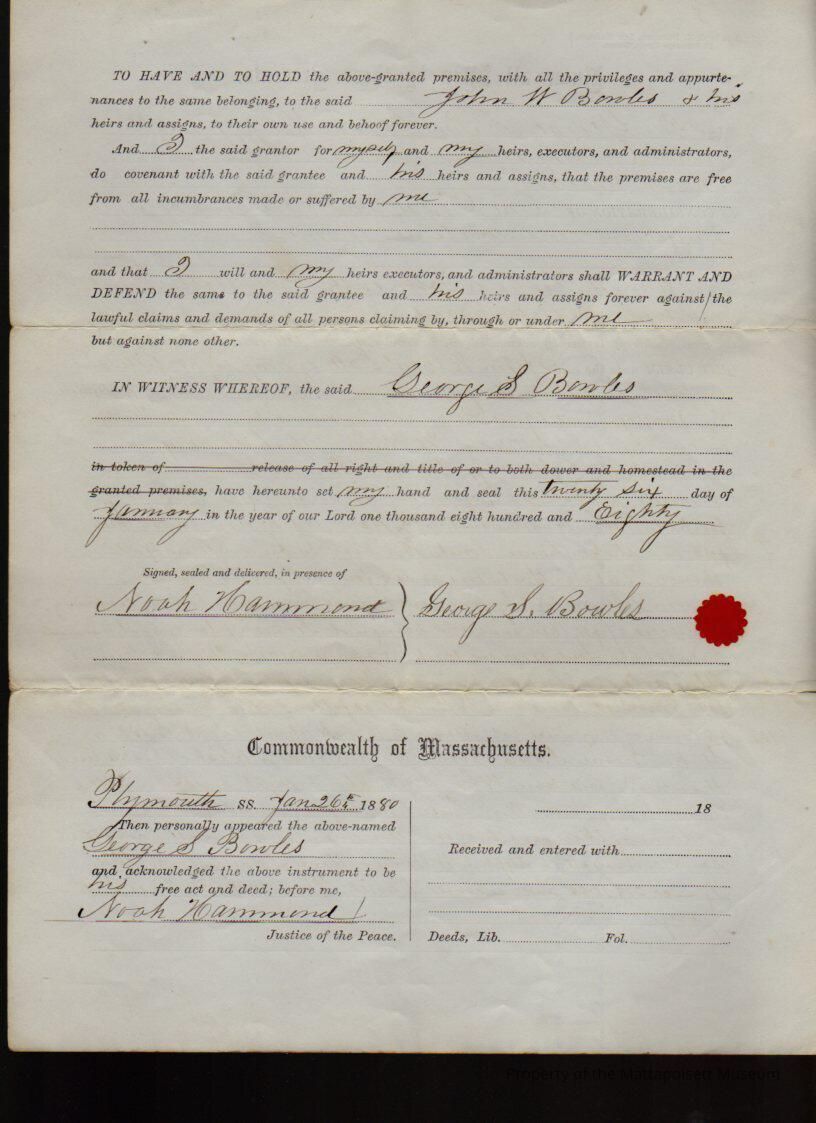 TO HAVE AND TO HOLD the above-granted premises, with all the privileges and appurte-
nances to the same belonging, to the said John W Bowles & his
heirs and assigns, to their own use and behoof forever.
And I the said grantor for myself and my heirs, executors, and administrators,
do covenant with the said grantee and his heirs and assigns, that the premises are free
from all incumbrances made or suffered by me
and that I will and my heirs executors, and administrators shall WARRANT AND
DEFEND the same to the said grantee and his heirs and assigns forever against the
lawful claims and demands of all persons claiming by, through or under me
but against none other.
IN WITNESS WHEREOF, the said George S Bowles
in token of release of all right and title of or to both dower and homestead in the
granted premises, have hereunto set my hand and seal this twenty six day of
January in the year of our Lord one thousand eight hundred and Eighty
Signed, sealed and delivered, in presence of
Noah Hammond } George S. Bowles
Commonwealth of Massachusetts.
Plymouth SS. Jan 26th 1880
Then personally appeared the above-named
George S Bowles
and acknowledged the above instrument to be
his free act and deed; before me,
Noah Hammond
Justice of the Peace.
18
Received and entered with
Deeds, Lib. Fol.
Property of the Mattapoisett Museum